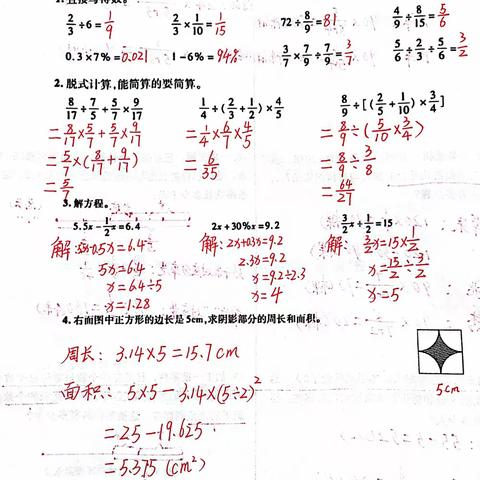 1. 直接写得数。
2/3÷6=1/9 2/3×1/10=1/15 72÷8/9=81 4/9÷8/15=5/6
0.3×7%=0.021 1-6%=94% 3/7×7/9÷7/9=3/7 5/6÷2/3÷5/6=3/2
2. 脱式计算,能简算的要简算。
8/17÷7/5+5/7×9/17 1/4÷(2/3+1/2)×4/5 8/9÷[(2/5+1/10)×3/4]
=8/17×5/7+5/7×9/17 =1/4×6/7×4/5 =8/9÷(5/10×3/4)
=5/7×(8/17+9/17) =6/35 =8/9÷3/8
=5/7 =64/27
3. 解方程。
5.5x-1/2x=6.4 2x+30%x=9.2 3/2x÷1/2=15
解:5.5x-0.5x=6.4 解:2x+0.3x=9.2 解:3/2x=15×1/2
5x=6.4 2.3x=9.2 x=15/2÷3/2
x=6.4÷5 x=9.2÷2.3 x=5
x=1.28 x=4
4. 右面图中正方形的边长是5cm,求阴影部分的周长和面积。
周长: 3.14×5=15.7cm
面积: 5×5-3.14×(5÷2)²
5cm
=25-19.625
=5.375(cm²)